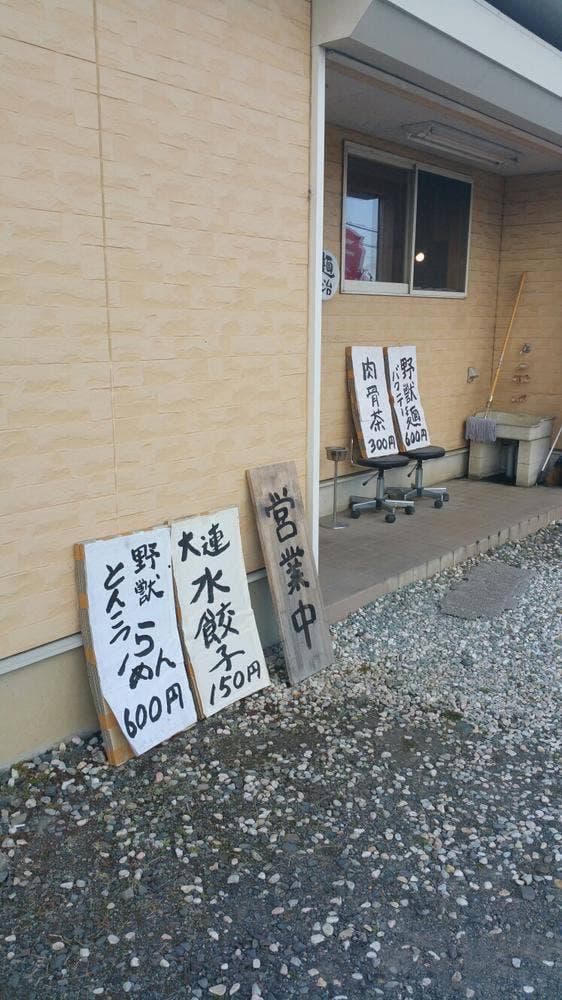 野獣
とんこつ
らーめん
600円
大連
水餃子
150円
営業中
肉骨茶
300円
野獣麺
バクテー
600円
麺
治